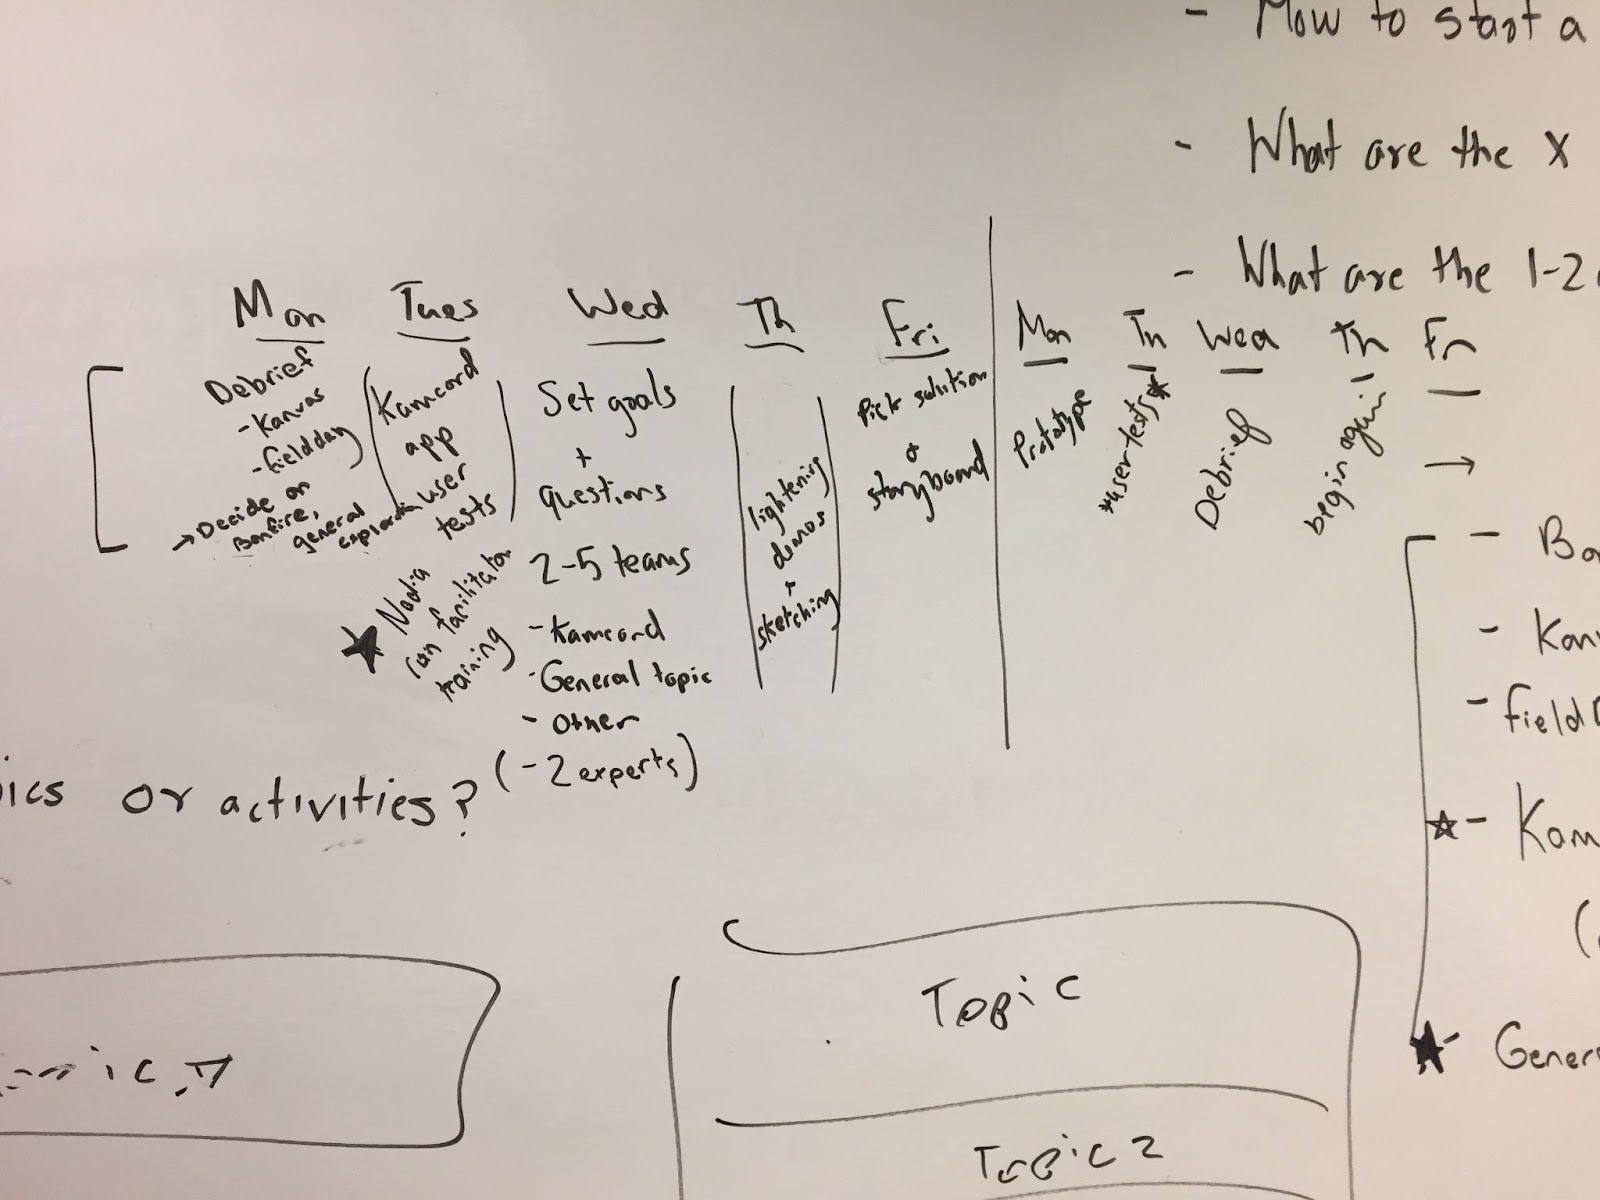 - How to start a
- What are the X
- What are the 1-2
Mon
Debrief
- Kanvas
- fieldday
→ Decide on
Bonfire,
general
exploration
Tues
Kamcord
app
user
tests
★ Nadia
run facilitator
training
Wed
Set goals
+
questions
2-5 teams
- Kamcord
- General topic
- Other
(- 2 experts)
Th
lightening
demos
+
sketching
Fri
Pick solution
+
storyboard
Mon
Prototype
Tu
*user tests*
Wed
Debrief
Th
begin again
Fri
→
- Bo
- Kan
- field
☆ - Kam
(
★ - Gener
ics or activities?
Topic
Topic 2